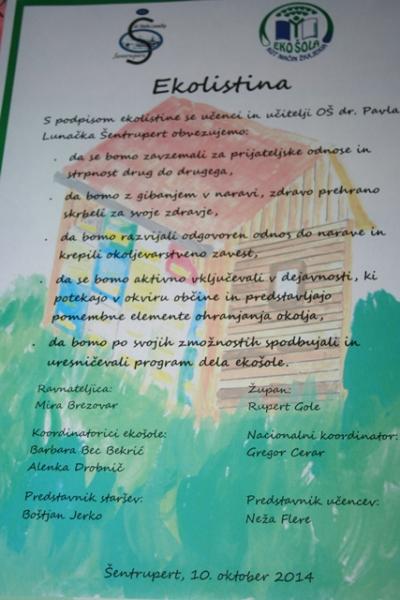 EKO ŠOLA
KOT NAČIN ŽIVLJENJA
Ekolistina
S podpisom ekolistine se učenci in učitelji OŠ dr. Pavla
Lunačka Šentrupert obvezujemo:
. da se bomo zavzemali za prijateljske odnose in
strpnost drug do drugega,
. da bomo z gibanjem v naravi, zdravo prehrano
skrbeli za svoje zdravje,
. da bomo razvijali odgovoren odnos do narave in
krepili okoljevarstveno zavest,
. da se bomo aktivno vključevali v dejavnosti, ki
potekajo v okviru občine in predstavljajo
pomembne elemente ohranjanja okolja,
. da bomo po svojih zmožnostih spodbujali in
uresničevali program dela ekošole.
Ravnateljica: Župan:
Mira Brezovar Rupert Gole
Koordinatorici ekošole: Nacionalni koordinator:
Barbara Bec Bekrić Gregor Cerar
Alenka Drobnič
Predstavnik staršev: Predstavnik učencev:
Boštjan Jerko Neža Flere
Šentrupert, 10. oktober 2014